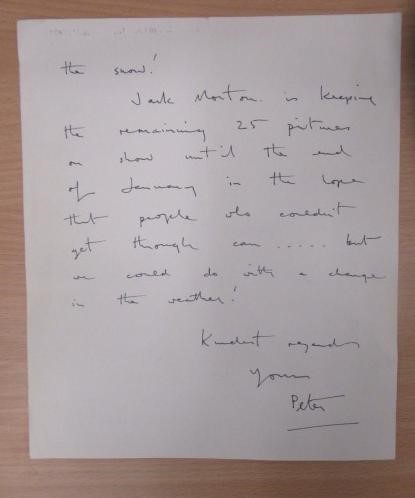 the snow!
Jack Morton. is keeping
the remaining 25 pictures
on show until the end
of January in the hope
that people who couldn't
get through can ..... but
we could do with a change
in the weather!
Kindest regards
Yours
Peter